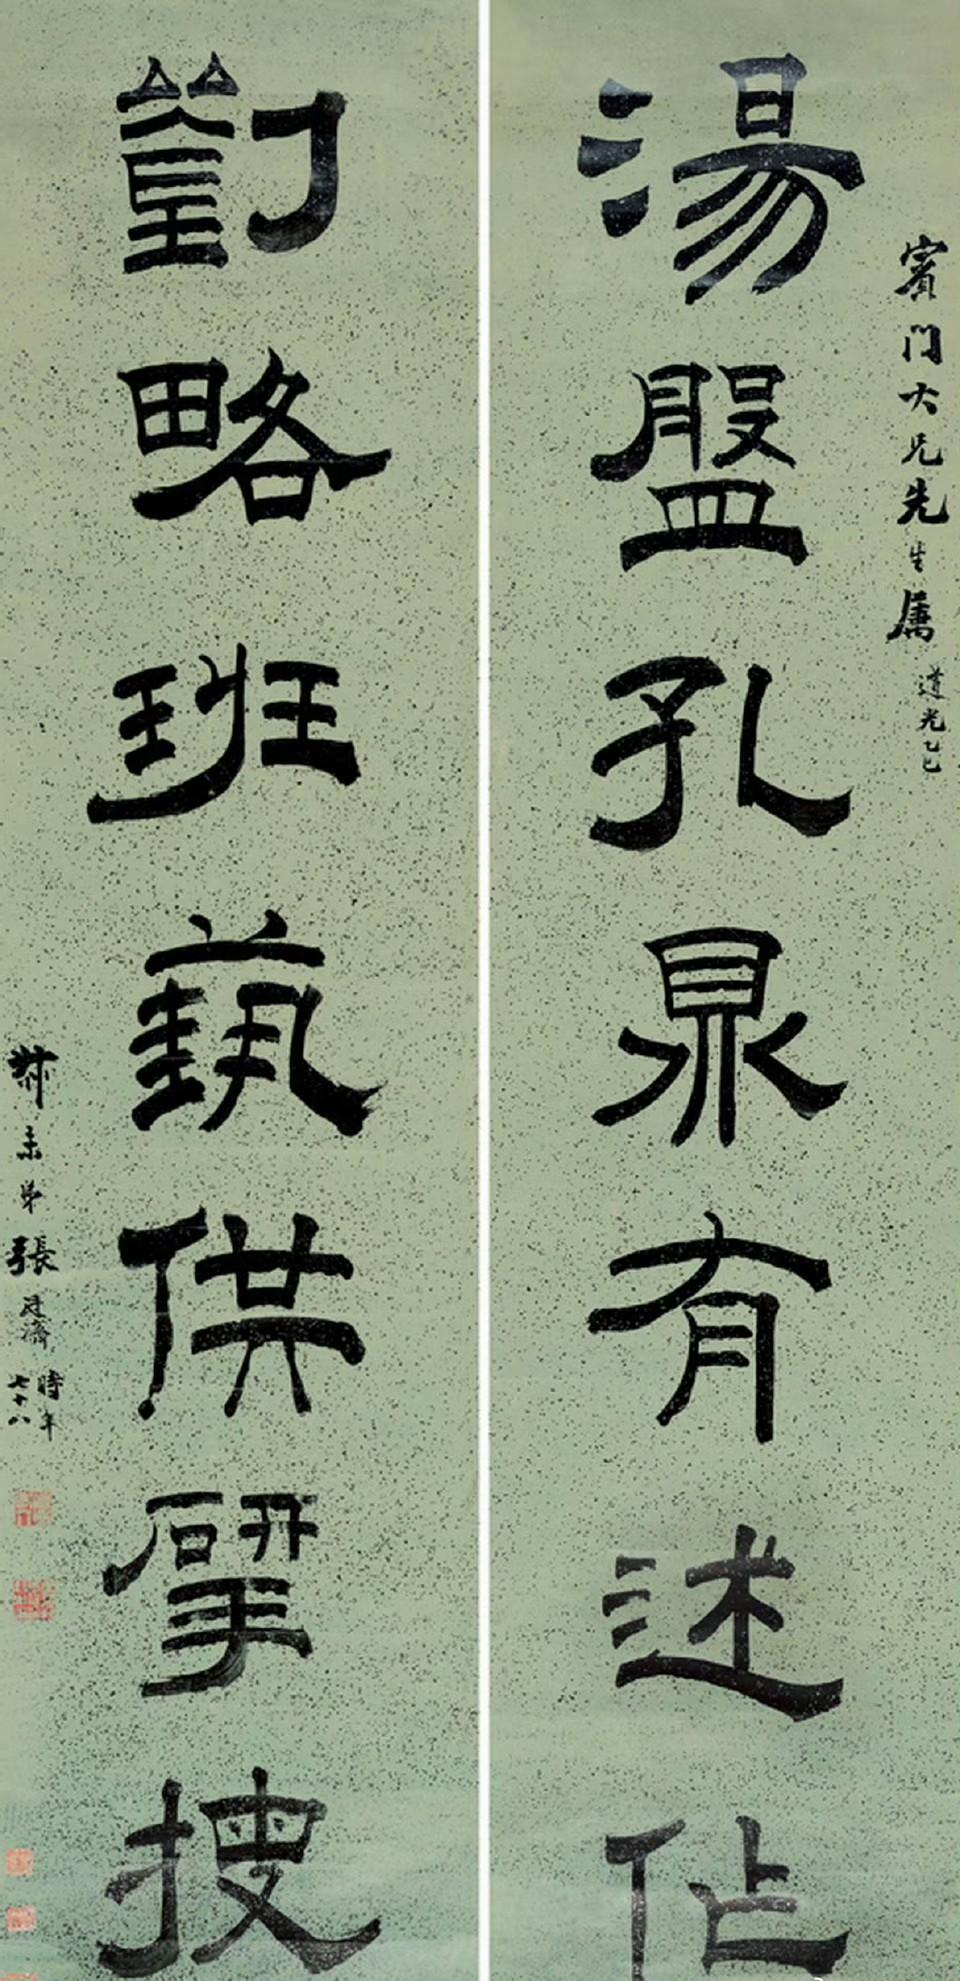 賓門大兄先生属 道光乙巳
湯盤孔鼎有述作
劉略班蓺供揅搜
叔未弟張廷濟 時年七十八